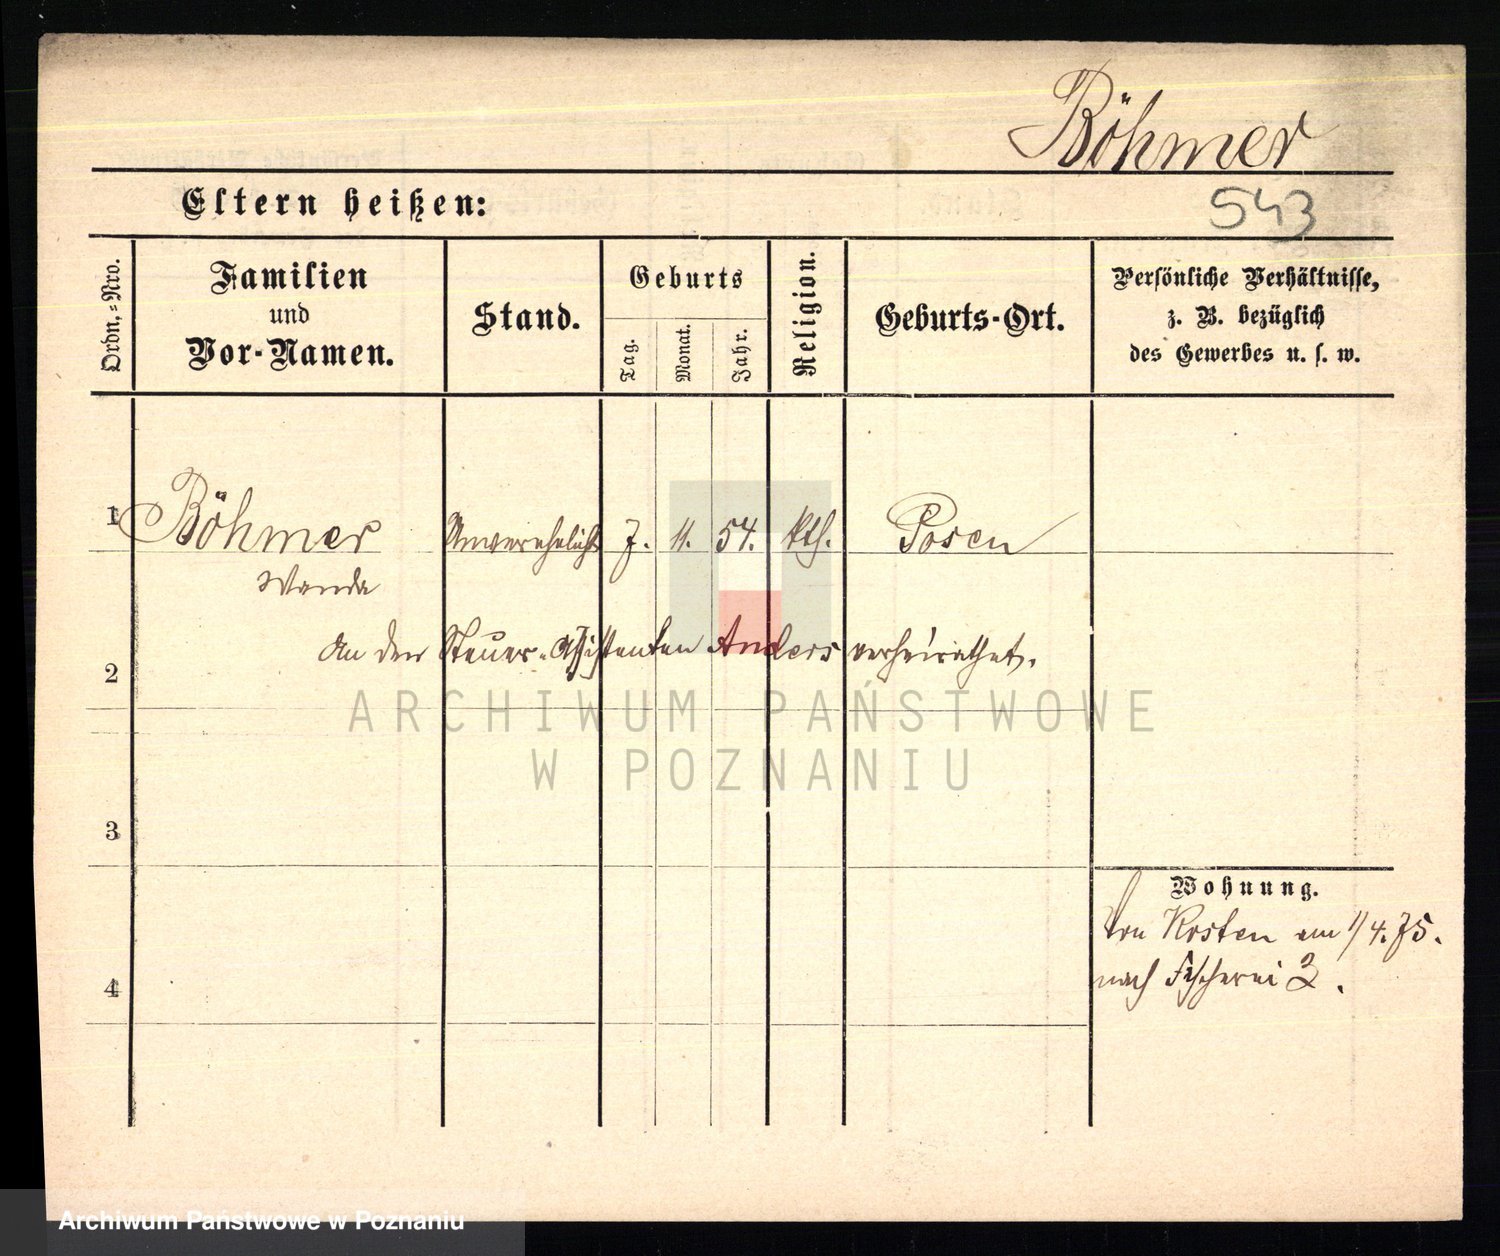 Böhmer
543
Eltern heißen:
Ordn.-Nro.
Familien
und
Vor-Namen.
Stand.
Geburts
Tag.
Monat.
Jahr.
Religion.
Geburts-Ort.
Persönliche Verhältnisse,
z. B. bezüglich
des Gewerbes u. s. w.
1 Böhmer Unverehelicht 7. 11. 54. kth. Posen
Wanda
An den Steuer-Assistenten Anders verheirathet.
2
ARCHIWUM PAŃSTWOWE
W POZNANIU
3
Wohnung.
Von Kosten am 1/4.75.
nach Fischerei 3.
4
Archiwum Państwowe w Poznaniu